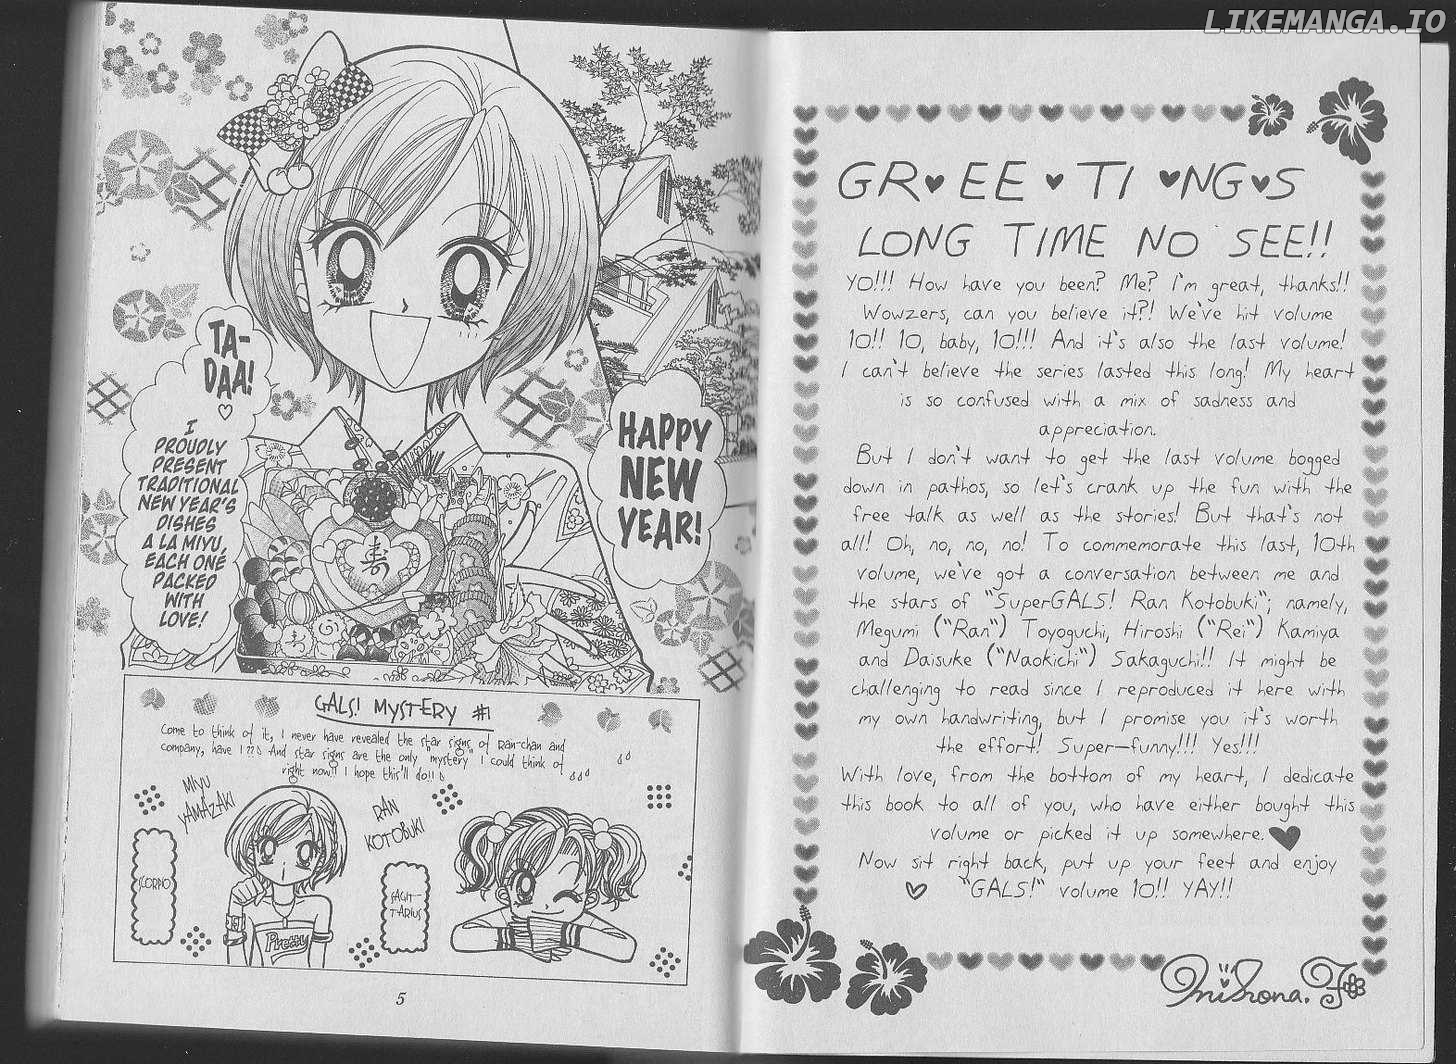 LIKEMANGA.IO
TA-
DAA!
I
PROUDLY
PRESENT
TRADITIONAL
NEW YEAR'S
DISHES
A LA MIYU,
EACH ONE
PACKED
WITH
LOVE!
HAPPY
NEW
YEAR!
寿
GALS! MYSTERY #1
Come to think of it, I never have revealed the star signs of Ran-chan and
company, have I?? And star signs are the only "mystery" I could think of
right now!! I hope this'll do!!
MIYU
YAMAZAKI
SCORPIO
Pretty
RAN
KOTOBUKI
SAGIT-
TARIUS
5
GR♥EE♥TI♥NG♥S
LONG TIME NO SEE!!
YO!!! How have you been? Me? I'm great, thanks!!
Wowzers, can you believe it?! We've hit volume
10!! 10, baby, 10!!! And it's also the last volume!
I can't believe the series lasted this long! My heart
is so confused with a mix of sadness and
appreciation.
But I don't want to get the last volume bogged
down in pathos, so let's crank up the fun with the
free talk as well as the stories! But that's not
all! Oh, no, no, no! To commemorate this last, 10th
volume, we've got a conversation between me and
the stars of "SuperGALS! Ran Kotobuki"; namely,
Megumi ("Ran") Toyoguchi, Hiroshi ("Rei") Kamiya
and Daisuke ("Naokichi") Sakaguchi!! It might be
challenging to read since I reproduced it here with
my own handwriting, but I promise you it's worth
the effort! Super-funny!!! Yes!!!
With love, from the bottom of my heart, I dedicate
this book to all of you, who have either bought this
volume or picked it up somewhere. ♥
Now sit right back, put up your feet and enjoy
♡ "GALS!" volume 10!! YAY!!
Mihona. F